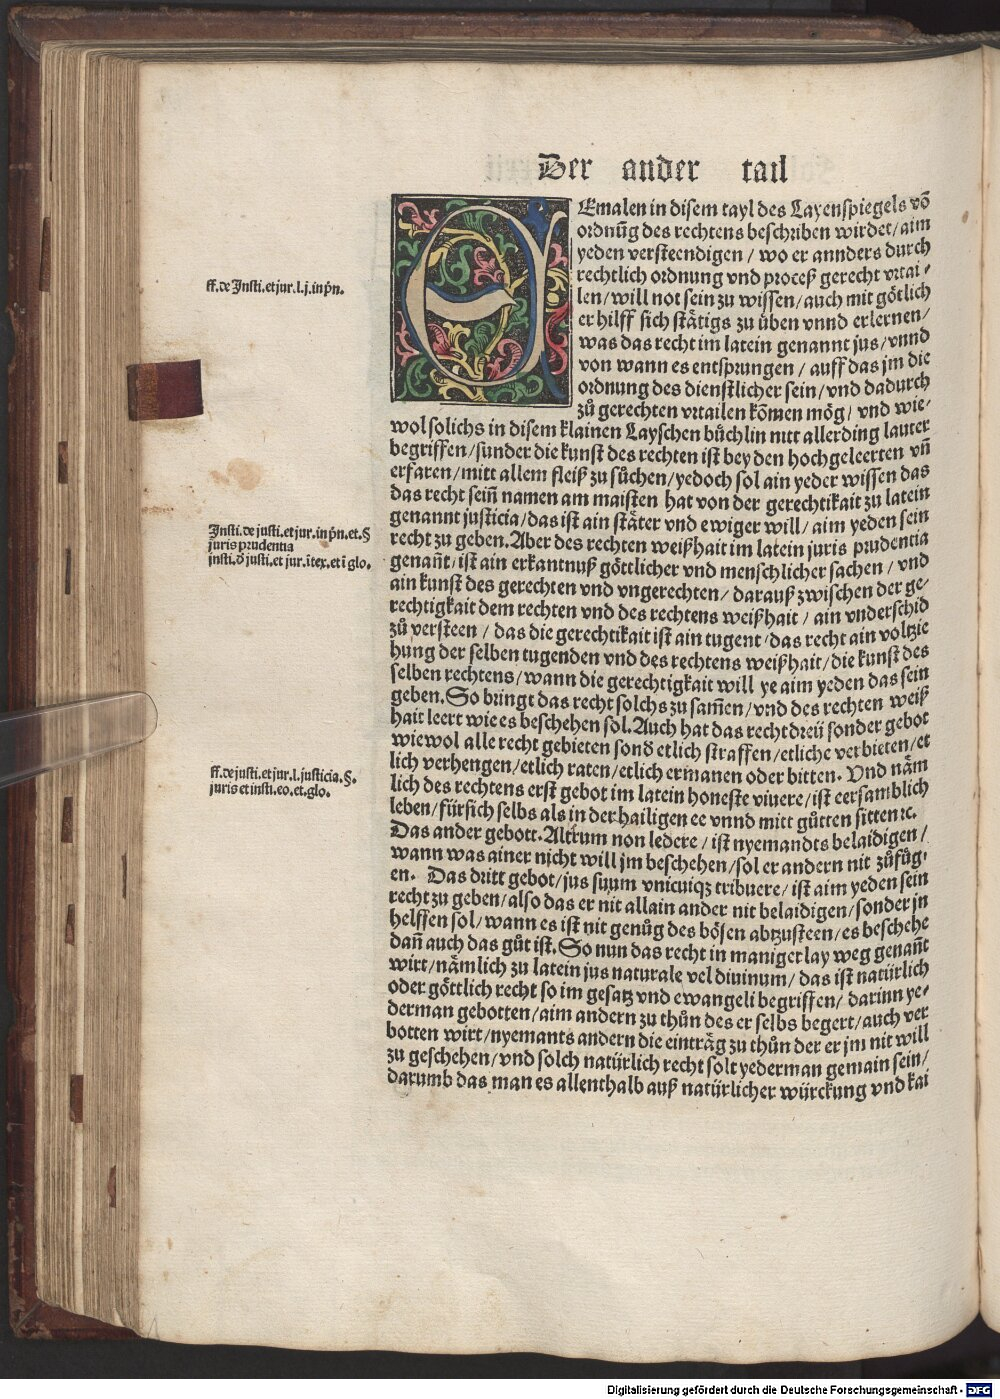 Der ander tail
DEmalen in disem tayl des Layenspiegels võ
ordnũg des rechtens beschriben wirdet/aim
yeden versteendigen/wo er annders durch
rechtlich ordnung vnd proceß gerecht vrtai-
len/will not sein zu wissen/auch mit götlich
er hilff sich stätigs zu üben vnnd erlernen/
was das recht im latein genannt jus/vnnd
von wann es entsprungen/auff das jm die
ordnung des dienstlicher sein/vnd dadurch
zů gerechten vrtailen kõmen mög/vnd wie-
wol solichs in disem klainen Layschen büchlin nitt allerding lauter
begriffen/sunder die kunst des rechten ist bey den hochgeleerten vñ
erfaren/mitt allem fleiß zu sůchen/yedoch sol ain yeder wissen das
das recht seiñ namen am maisten hat von der gerechtikait zu latein
genannt justicia/das ist ain stäter vnd ewiger will/aim yeden sein
recht zu geben. Aber des rechten weißhait im latein juris prudentia
genañt/ist ain erkantnuß göttlicher vnd menschlicher sachen/vnd
ain kunst des gerechten vnd vngerechten/darauß zwischen der ge-
rechtigkait dem rechten vnd des rechtens weißhait/ain vnderschid
zů versteen/das die gerechtikait ist ain tugent/das recht ain voltzie
hung der selben tugenden vnd des rechtens weißhait/die kunst des
selben rechtens/wann die gerechtigkait will ye aim yeden das sein
geben. So bringt das recht solchs zu sam̃en/vnd des rechten weiß
hait leert wie es beschehen sol. Auch hat das recht dreü sonder gebot
wiewol alle recht gebieten sonđ etlich straffen/etliche verbieten/et
lich verhengen/etlich raten/etlich ermanen oder bitten. Vnd näm
lich des rechtens erst gebot im latein honeste viuere/ist eersamblich
leben/für sich selbs als in der hailigen ee vnnd mitt gůtten sitten ꝛc.
Das ander gebott. Altrum non ledere/ist nyemandts belaidigen/
wann was ainer nicht will jm beschehen/sol er andern nit zůfüg-
en. Das dritt gebot/jus suum vnicuiqꝫ tribuere/ist aim yeden sein
recht zu geben/also das er nit allain ander nit belaidigen/sonder jn
helffen sol/wann es ist nit genůg des bösen abtzusteen/es beschehe
dañ auch das gůt ist. So nun das recht in maniger lay weg genañt
wirt/nämlich zu latein jus naturale vel diuinum/das ist natürlich
oder göttlich recht so im gesatz vnd ewangeli begriffen/darinn ye-
derman gebotten/aim andern zu thůn des er selbs begert/auch ver
botten wirt/nyemants andern die einträg zu thůn der er jm nit will
zu geschehen/vnd solch natürlich recht solt yederman gemain sein/
darumb das man es allenthalb auß natürlicher würckung vnd kai
ff. de Insti. et jur. l. j. in p̃n.
Insti. de justi. et jur. in p̃n. et. §
juris prudentia
insti. đ justi. et jur. ĩ tex. et ĩ glo.
ff. de justi. et jur. l. justicia. §.
juris et insti. eo. et. glo.
Digitalisierung gefördert durch die Deutsche Forschungsgemeinschaft - DFG